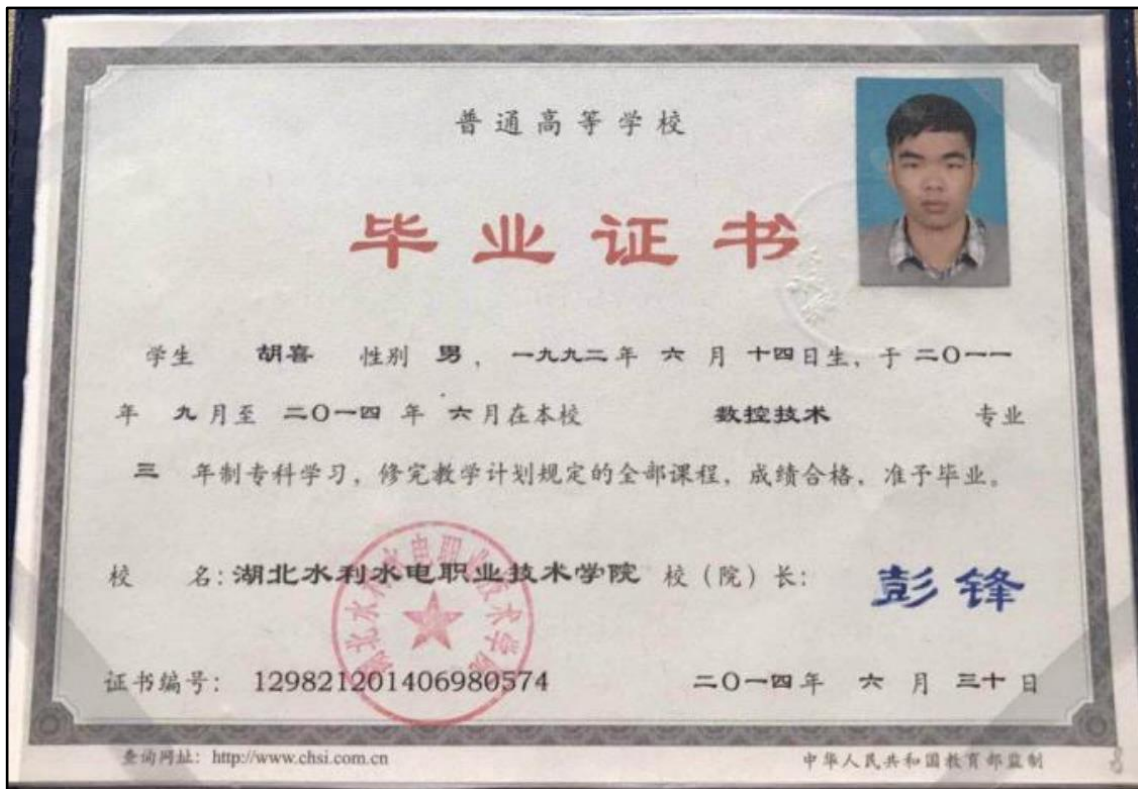 普通高等学校
毕业证书
学生 胡喜 性别 男，一九九二年 六 月 十四日生，于二〇一一
年 九月至 二〇一四 年 六月在本校 数控技术 专业
三 年制专科学习，修完教学计划规定的全部课程，成绩合格，准予毕业。
校 名：湖北水利水电职业技术学院 校（院）长： 彭锋
湖北水利水电职业技术学院
证书编号： 129821201406980574 二〇一四年 六 月 三十日
查询网址：http://www.chsi.com.cn 中华人民共和国教育部监制